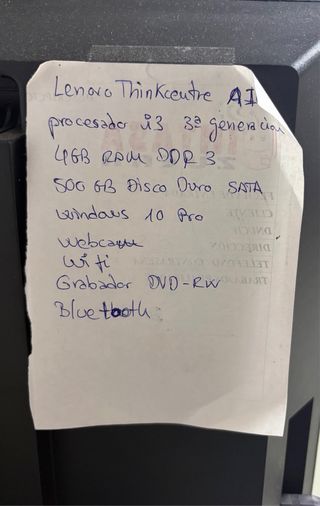 Lenovo Thinkcentre AI
procesador i3 3ª generacion
4GB RAM DDR 3
500 GB Disco Duro SATA
windows 10 Pro
webcam
Wifi
Grabador DVD-RW
Bluetooth
CLIENTE
DNI/CIF
DIRECCION